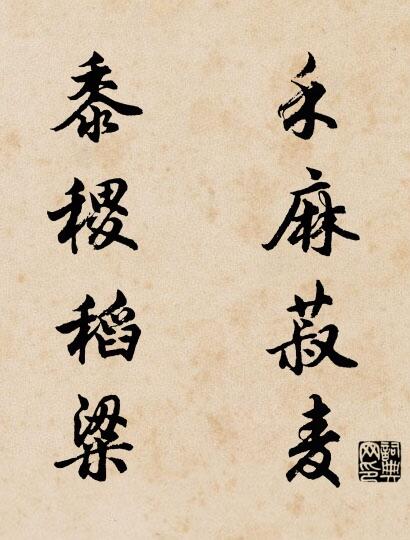 禾麻菽麦
黍稷稻粱
詞典
网印